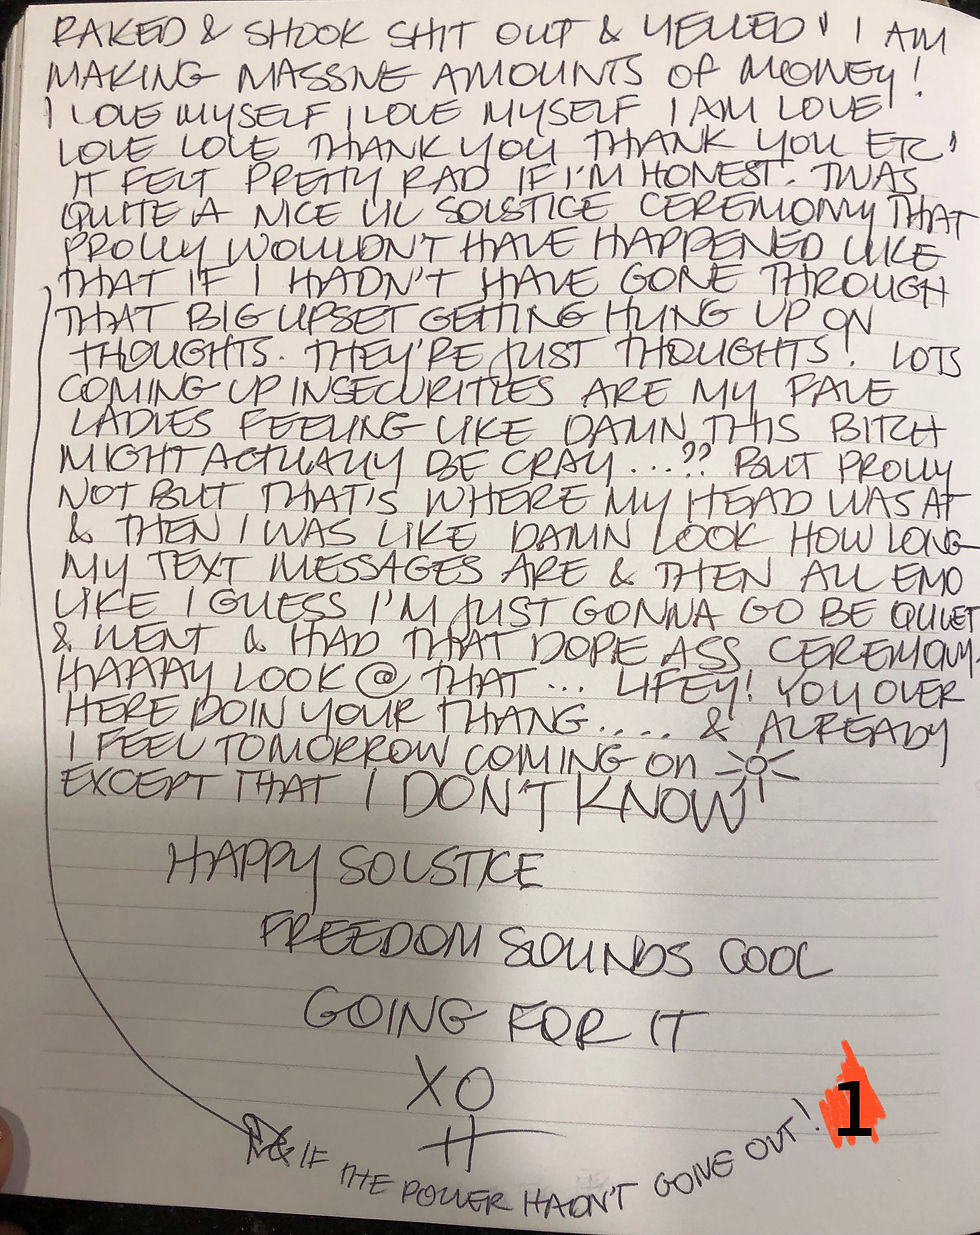 RAKED & SHOOK SHIT OUT & YELLED' I AM
MAKING MASSIVE AMOUNTS OF MOONEY!
I LOVE MYSELF I LOVE MYSELF I AM LOVE
LOVE LOVE THANK YOU THANK YOU ETC'
IT FELT PRETTY RAD IF I'M HONEST. TWAS
QUITE A NICE LIL SOLSTICE CEREMONY THAT
PROLLY WOULDN'T HAVE HAPPENED LIKE
THAT IF I HADN'T HAVE GONE THROUGH
THAT BIG UPSET GETTING HUNG UP ON
THOUGHTS. THEY'RE JUST THOUGHTS! LOTS
COMING UP INSECURITIES ARE MY FAVE
LADIES FEELING LIKE DAMN THIS BITCH
MIGHT ACTUALLY BE CRAY...?? BUT PROLLY
NOT BUT THAT'S WHERE MY HEAD WAS AT
& THEN I WAS LIKE DAMN LOOK HOW LONG
MY TEXT MESSAGES ARE & THEN ALL EMO
LIKE I GUESS I'M JUST GONNA GO BE QUIET
& WENT & HAD THAT DOPE ASS CEREMONY.
HAAAAY LOOK @ THAT... LIFEY! YOU OVER
HERE DOIN YOUR THANG.... & ALREADY
I FEEL TOMORROW COMING ON
EXCEPT THAT I DON'T KNOW
HAPPY SOLSTICE
FREEDOM SOUNDS COOL
GOING FOR IT
XO
H
& IF THE POWER HADN'T GONE OUT!
1